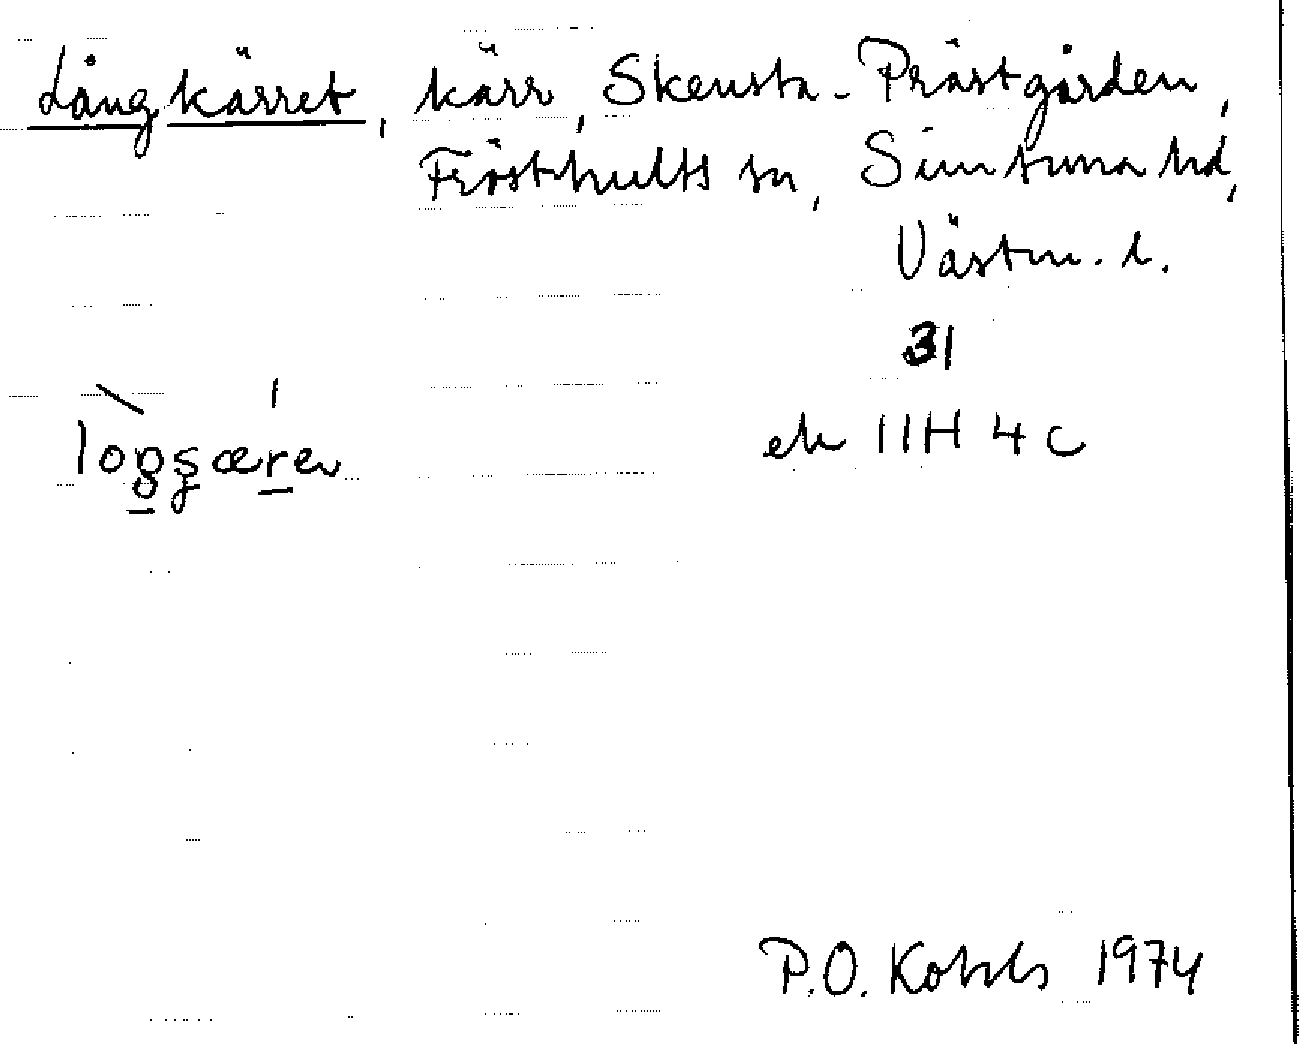 Långkärret, kärr, Skensta-Prästgården,
Frösthults sn, Simtuna hd,
Västm. l.
31
ek 11H 4c
P.O. 1974